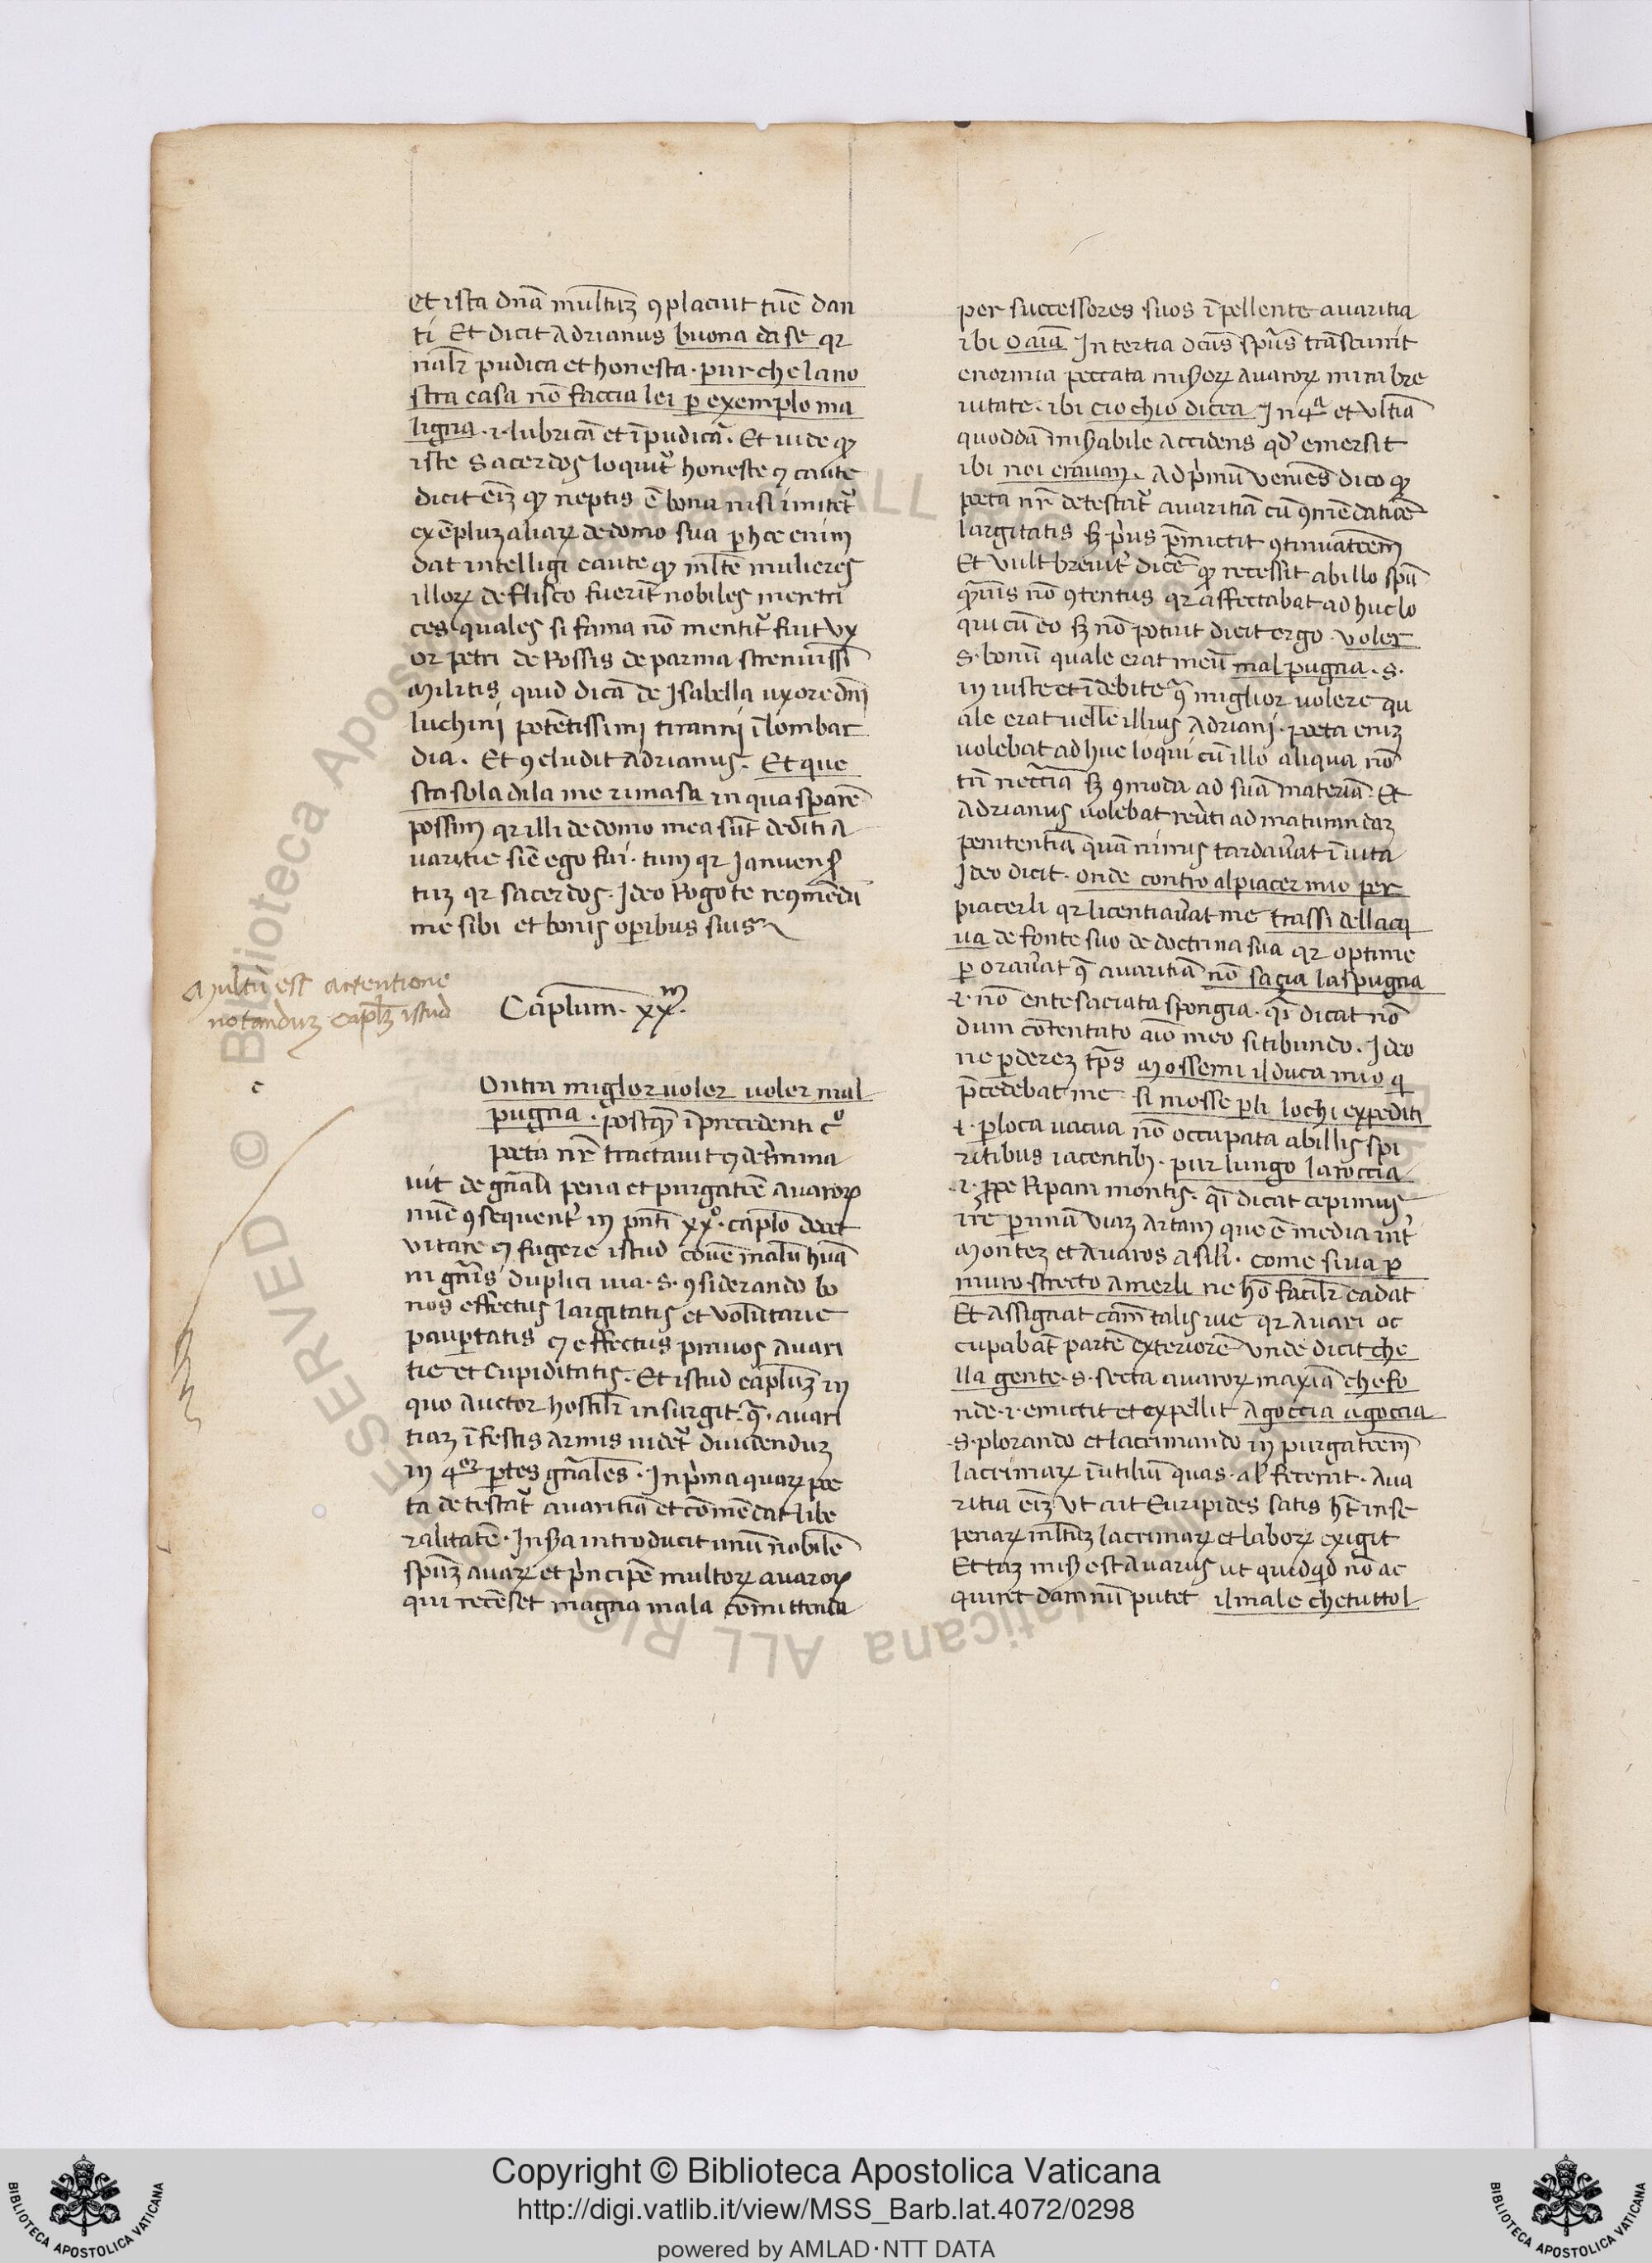 et ista dnā multuȝ ꝯplacuit tūc dan
ti Et dicit Adrianus buona da se qꝛ
nālr pudica et honesta · pur che la no
stra casa nō faccia lei ꝑ exemplo ma
ligna · i · lubricā et īpudicā · Et uide ꝙ
iste Sacerdos loquit᷑ honeste ⁊ caute
dicit eīȝ ꝙ neptis ē bona nisi imitet᷑
exēpluȝ aliaꝝ de domo sua ꝑ hoc enim
dat intelligi caute ꝙ mlte mulieres
illoꝝ de flisco fuerīt nobiles meretri
ces quales si fama nō mentit᷑ fuit vx
or petri de Rossis de parma strenuissi
Militis quid dicā de Isabella uxore dni
luchini potētissimi tiranni ī lombar
dia · Et ꝯcludit Adrianus · Et que
sta sola dila me rimasa in qua sparē
possim qꝛ illi de domo mea sūt dediti a
varitie sic ego fui · tum qꝛ Januens
tuȝ qꝛ sacerdos · Ideo Rogo te reꝯmēda
me sibi et bonis oꝑibus suis
Multū est actentione
notanduȝ caplȝ istud
Capłum · xxᵐ ·
Ontra miglor uoler uoler mal
pugna · postꝙ ī precedenti cº
poeta nr̄ tractauit ⁊ det᷑mina
uit de gn̄ali pena et purgatiōe auaroꝝ
nūc ꝯsequent᷑ in pn̄ti xxº · caplo docet
vitare ⁊ fugere istud cōue malū huā
ni gn̄is duplici uia · s · ꝯsiderando bo
nos effectus largitatis et volūtarie
pauꝑtatis ⁊ effectus prauos auari
tie et cupiditatis · Et istud capluȝ in
quo auctor hostilr insurgit · ꝯ̄ · auari
tiaȝ īfestis armis uidet᷑ diuidenduȝ
in 4ᵒʳ ꝑtes gn̄ales · In pima quaꝝ poe
ta detestat᷑ auaritiā et cōmēdat libe
ralitatē · In sᵃ introducit unū nobilē
spm̄ȝ auaꝝ et pincipē multoꝝ auaroꝝ
qui recēset magna mala cōmittenda
per successores suos īpellente auaritia
ibi o aiā In tertia dcūs spūs trāscurrit
enormia peccata miseroꝝ auaroꝝ mira bre
uitate · ibi cio chio dicea In 4ᵃ et vltiā
quoddā misabile accidens qd emersit
ibi noi erauam · Ad pimū veniēs dico ꝙ
poeta nr̄ detestat᷑ auaritiā cū ꝯmēdatiōe
largitatis sȝ pius ꝑmictit ꝯtinuatiōem
Et vult breuit᷑ dicē ꝙ recessit ab illo spū
ꝙuis nō ꝯtentus qꝛ affectabat adhuc lo
qui cū eo sȝ nō potuit dicit ergo · voler
s · bonū quale erat meū mal pugna · s ·
iniuste et īdebite ꝯ̄ miglior uolere qu
ale erat uelle illius Adriani · poeta eniȝ
uolebat adhuc loqui cū illo aliqua nō
tn̄ necc̄ia sȝ ꝯmoda ad suā materiā · Et
Adrianus uolebat reuti ad maturandaȝ
penitentiā quā nimis tardauat ī uita
Ideo dicit · onde contro al piacer mio per
piacerli qꝛ licentiauat me trassi dellacq
ua de fonte suo de doctrina sua qꝛ optime
ꝑorauat ꝯ̄ auaritiā nō sacia la spugna
· i · nō ente saciata spongia · q̄i dicat nō
dum cōtentato aio meo sitibundo · Ideo
ne ꝑdereȝ tp̄s mossemi il duca mio q
p̄cedebat me si mosse ꝑli lochi expediti
· i · ꝑ loca uacua nō occupata ab illis spi
ritibus iacentibȝ · pur lungo la roccia
· i · ꝓpe Ripam montis · q̄i dicat cepimus
ire ꝑ unā viaȝ artam que ē media int᷑
Montez et Auaros a sili · come si ua ꝑ
muro strecto a merli ne hō facilr cadat
Et assignat cām talis uie qꝛ auari oc
cupabāt partē exteriorē vnde dicit che
lla gente · s · secta auaroꝝ maxiā che fo
nde · i · emictit et expellit a goccia a goccia
· s · plorando et lacrimando in purgatiōem
lacrimaꝝ inutiliū quas · al fecerat · aua
ritia eiȝ vt ait Euripides satis hȝ in se
penaꝝ mltūȝ lacrimaꝝ et laboꝝ exigit
Et taȝ miser est auarus ut quidquid nō ac
quiret damnū putet il male che tuttol
Copyright © Biblioteca Apostolica Vaticana
http://digi.vatlib.it/view/MSS_Barb.lat.4072/0298
powered by AMLAD·NTT DATA